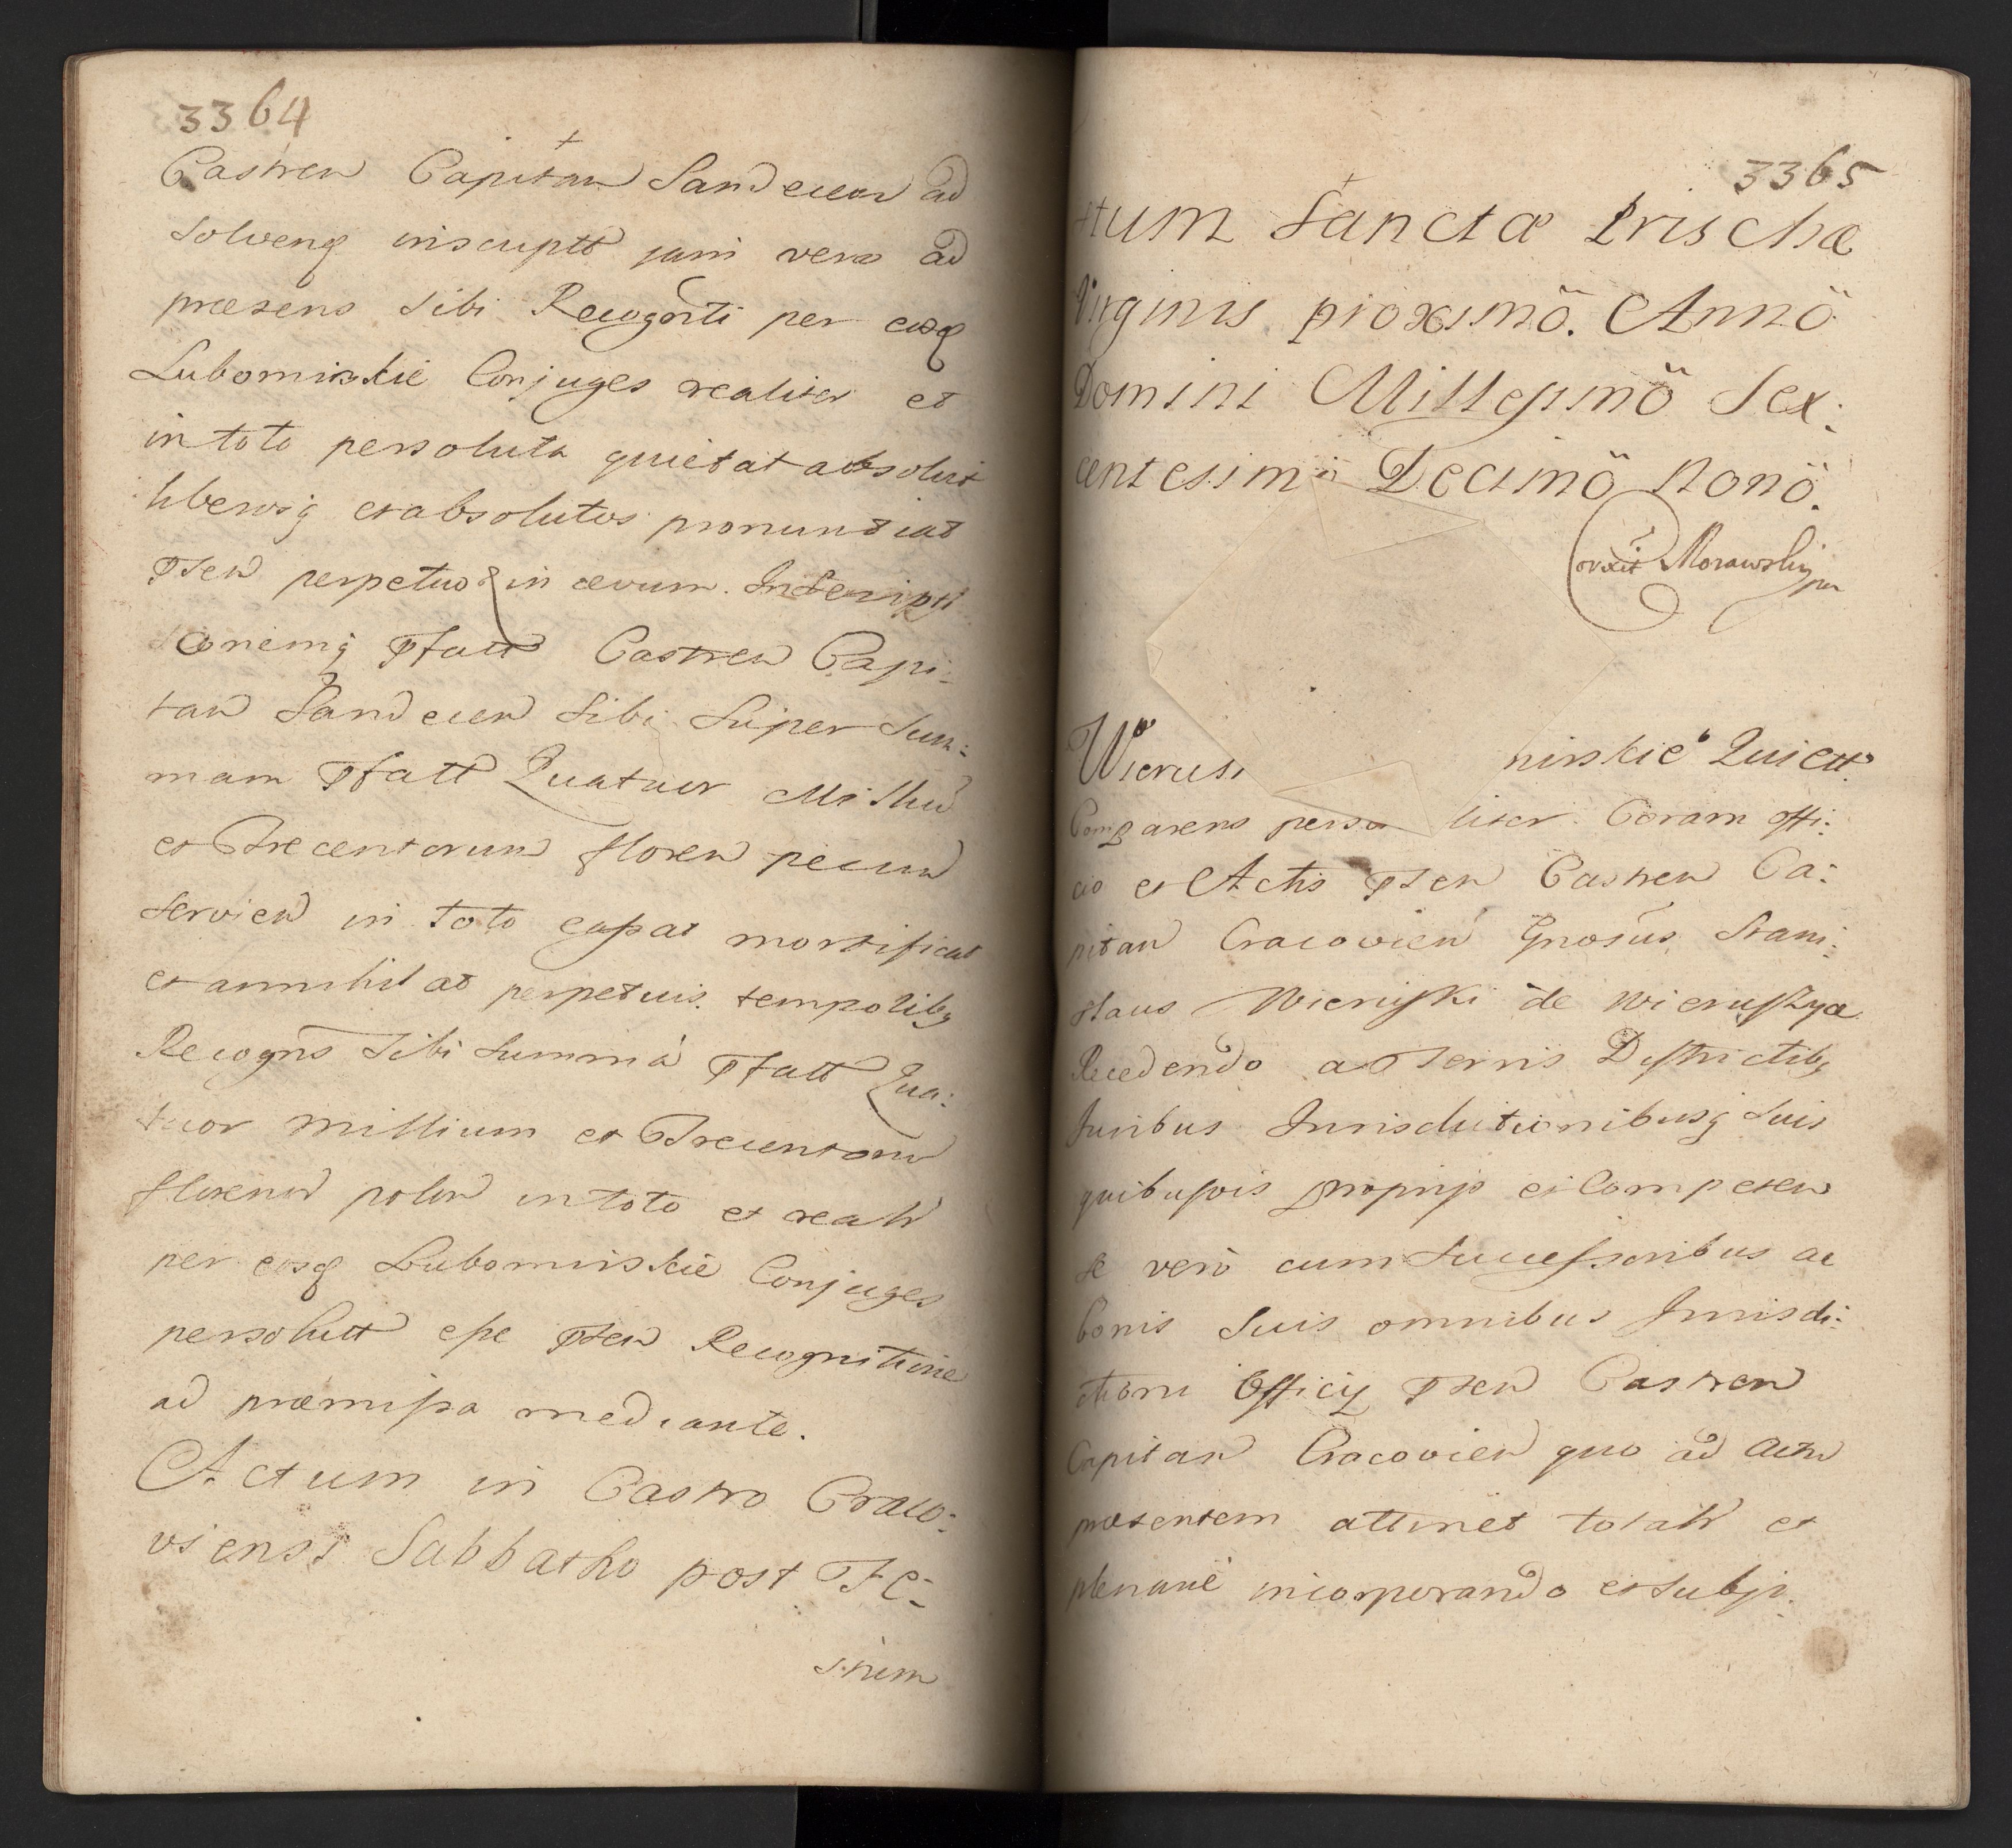 3364
Castren Capitan Sandecen ad
solvenq inscriptt jam vero ad
præsens sibi Recognti per eosq
Lubomirskie Conjuges realiter et
in toto persoluta quietat absolvit
liberosq et absolutos pronuntiat
Psen perpetuo & in ævum. Inscripti
onemq Pfatt Castren Capi:
tan Sandecen sibi super Sum:
mam Pfatt Quatuor Milliu
et Trecentorum floren pecun
servien in toto cassat mortificat
et annihilat perpetuis temporibq
Recogns sibi summa Pfatt Qua:
tuor millium et Trecentoru
florenor polon in toto et realr
per eosq Lubomirskie Conjuges
persolutt esse Psen Recognitione
ad præmissa mediante.
Actum in Castro Craco:
viensi Sabbatho post Fe:
stum
3365
stum Sanctæ Prischæ
Virginis proximo. Anno
Domini Millesimo Sex:
centesimo Decimo Nono.
Correxit Morawski
Wierus nirskie Quiett
Comparens perso liter Coram offi:
cio et Actis Psen Castren Ca:
pitan Cracovien Gnosus Stani:
slaus Wieruski de Wieruszyce
Recedendo a Terris Districtibq
Juribus Jurisdictionibusq suis
quibusvis proprijs ei Competen
se vero cum Successoribus ac
bonis suis omnibus Jurisdi:
ctioni Officij Psen Castren
Capitan Cracovien quo ad Actu
præsentem attinet totalr et
plenarie incorporando et subji: